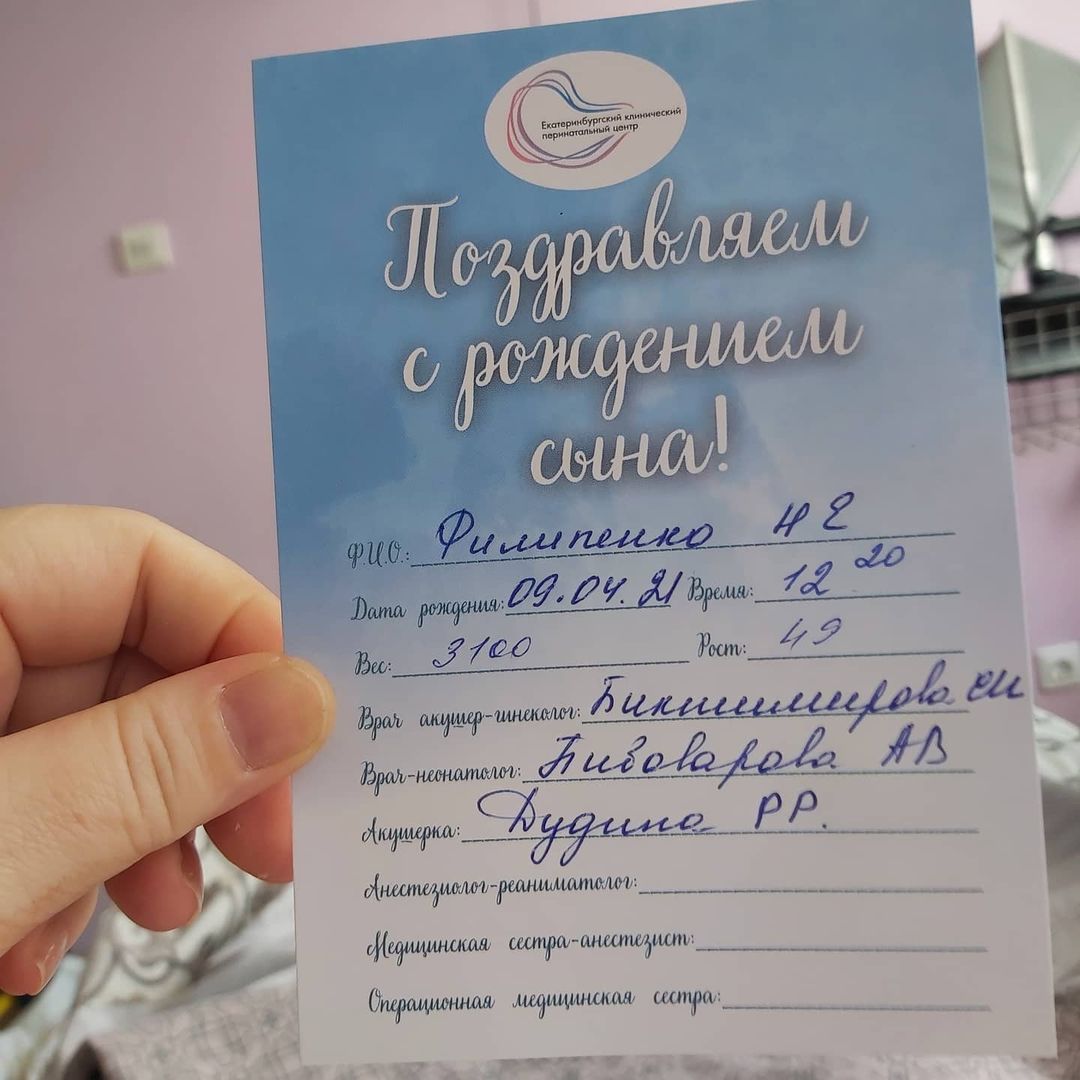 Екатеринбургский клинический
перинатальный центр
Поздравляем
с рождением
сына!
Ф.И.О.: Филипенко Н Е
Дата рождения: 09.04.21 Время: 12 20
Вес: 3100 Рост: 49
Врач акушер-гинеколог: Биктимирова
Врач-неонатолог: Пивоварова АВ
Акушерка: Дудина РР.
Анестезиолог-реаниматолог:
Медицинская сестра-анестезист:
Операционная медицинская сестра: